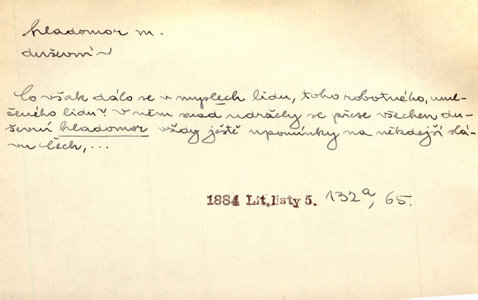 hladomor m.
duševní ~
Co však dálo se v myslech lidu, toho robotného, umu-
čeného lidu? V něm snad udržely se přese všechen du-
ševní hladomor vždy ještě upomínky na někdejší slá-
vu Čech, ...
1884 Lit. listy 5. 132a, 65.